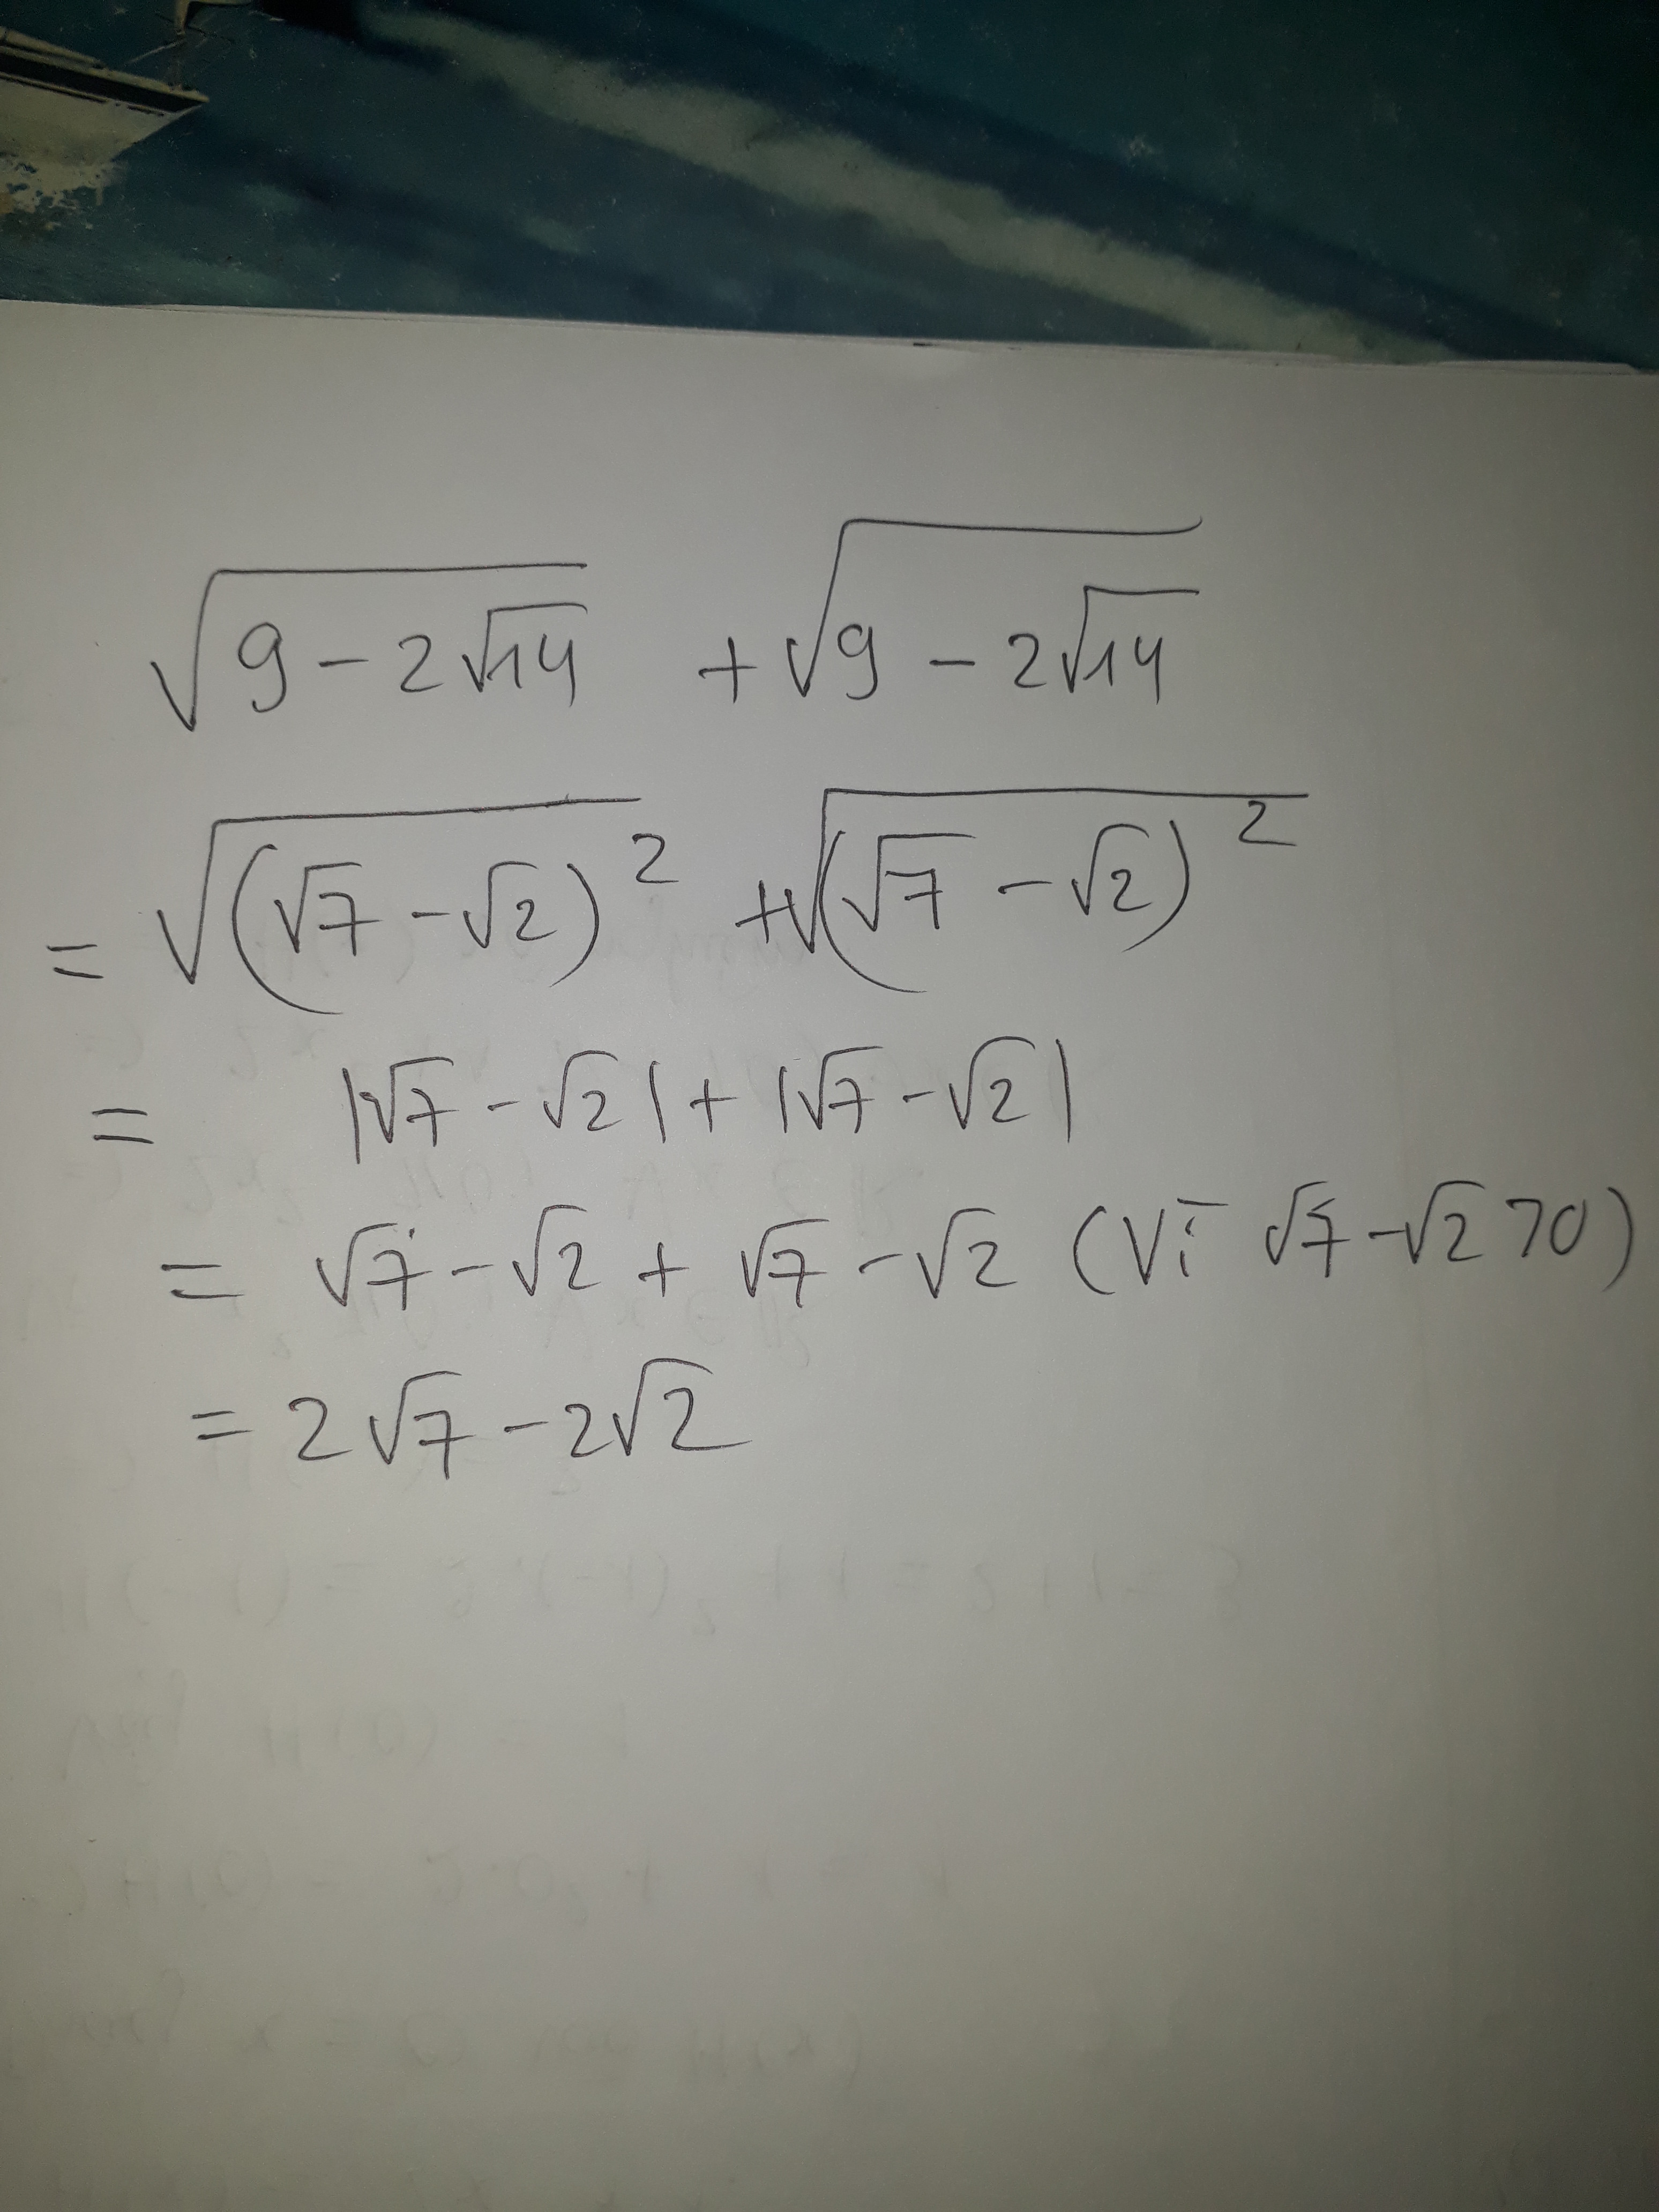 √(9 - 2√14) + √(9 - 2√14)
= √((√7 - √2)²) + √((√7 - √2)²)
= |√7 - √2| + |√7 - √2|
= √7 - √2 + √7 - √2 (Vì √7 - √2 > 0)
= 2√7 - 2√2